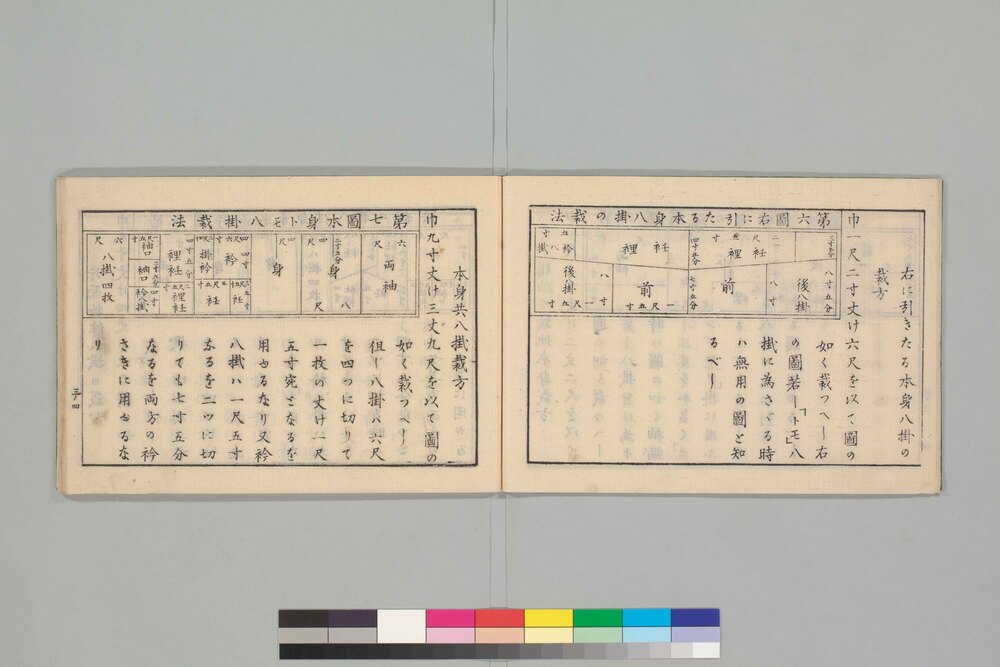 右に引きたる本身八掛の
裁方
巾一尺二寸丈け六尺を以て圖の
如く裁つへし右
の圖若し「トモ」八
掛に為さゞる時
ハ無用の圖と知
るべし
第六圖右に引たる本身八掛の裁法
二寸五分
八寸五分
後八掛
二尺
裡衽
四寸五分
八寸
前
七寸五分
裡衽
前
一尺五寸
八寸
後八掛
五寸
衿八掛
本身共八掛裁方
巾九寸丈け三丈九尺を以て圖の
如く裁つべし
但し八掛ハ六尺
を四つに切りて
一枚の丈け一尺
五寸宛となるを
用ゐるなり又衿
八掛ハ一尺五寸
なるを二ツに切
りても七寸五分
なるを両方の衿
さきに用ゐるな
り
第七圖本身トモ八掛裁法
六尺
両袖
二寸五分
四尺
身
八尺
四尺
身
四寸
衿
四尺六寸
衽
掛衿
四寸五分
裡衽
裡衽
袖口
袖口
四寸
衿八掛
六尺
八掛四枚
三十四